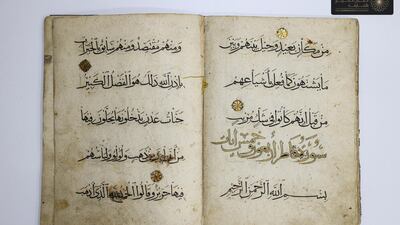 من مكان بعيد وحيل بينهم وبين
ما يشتهون كما فعل بأشياعهم
من قبل انهم كانوا في شك مريب
سورة فاطر اربعون وخمس آيات
بسم الله الرحمن الرحيم
ومنهم مقتصد ومنهم سابق بالخيرات
باذن الله ذلك هو الفضل الكبير
جنات عدن يدخلونها يحلون فيها
من اساور من ذهب ولؤلؤا ولباسهم
فيها حرير وقالوا الحمد لله الذي اذهب